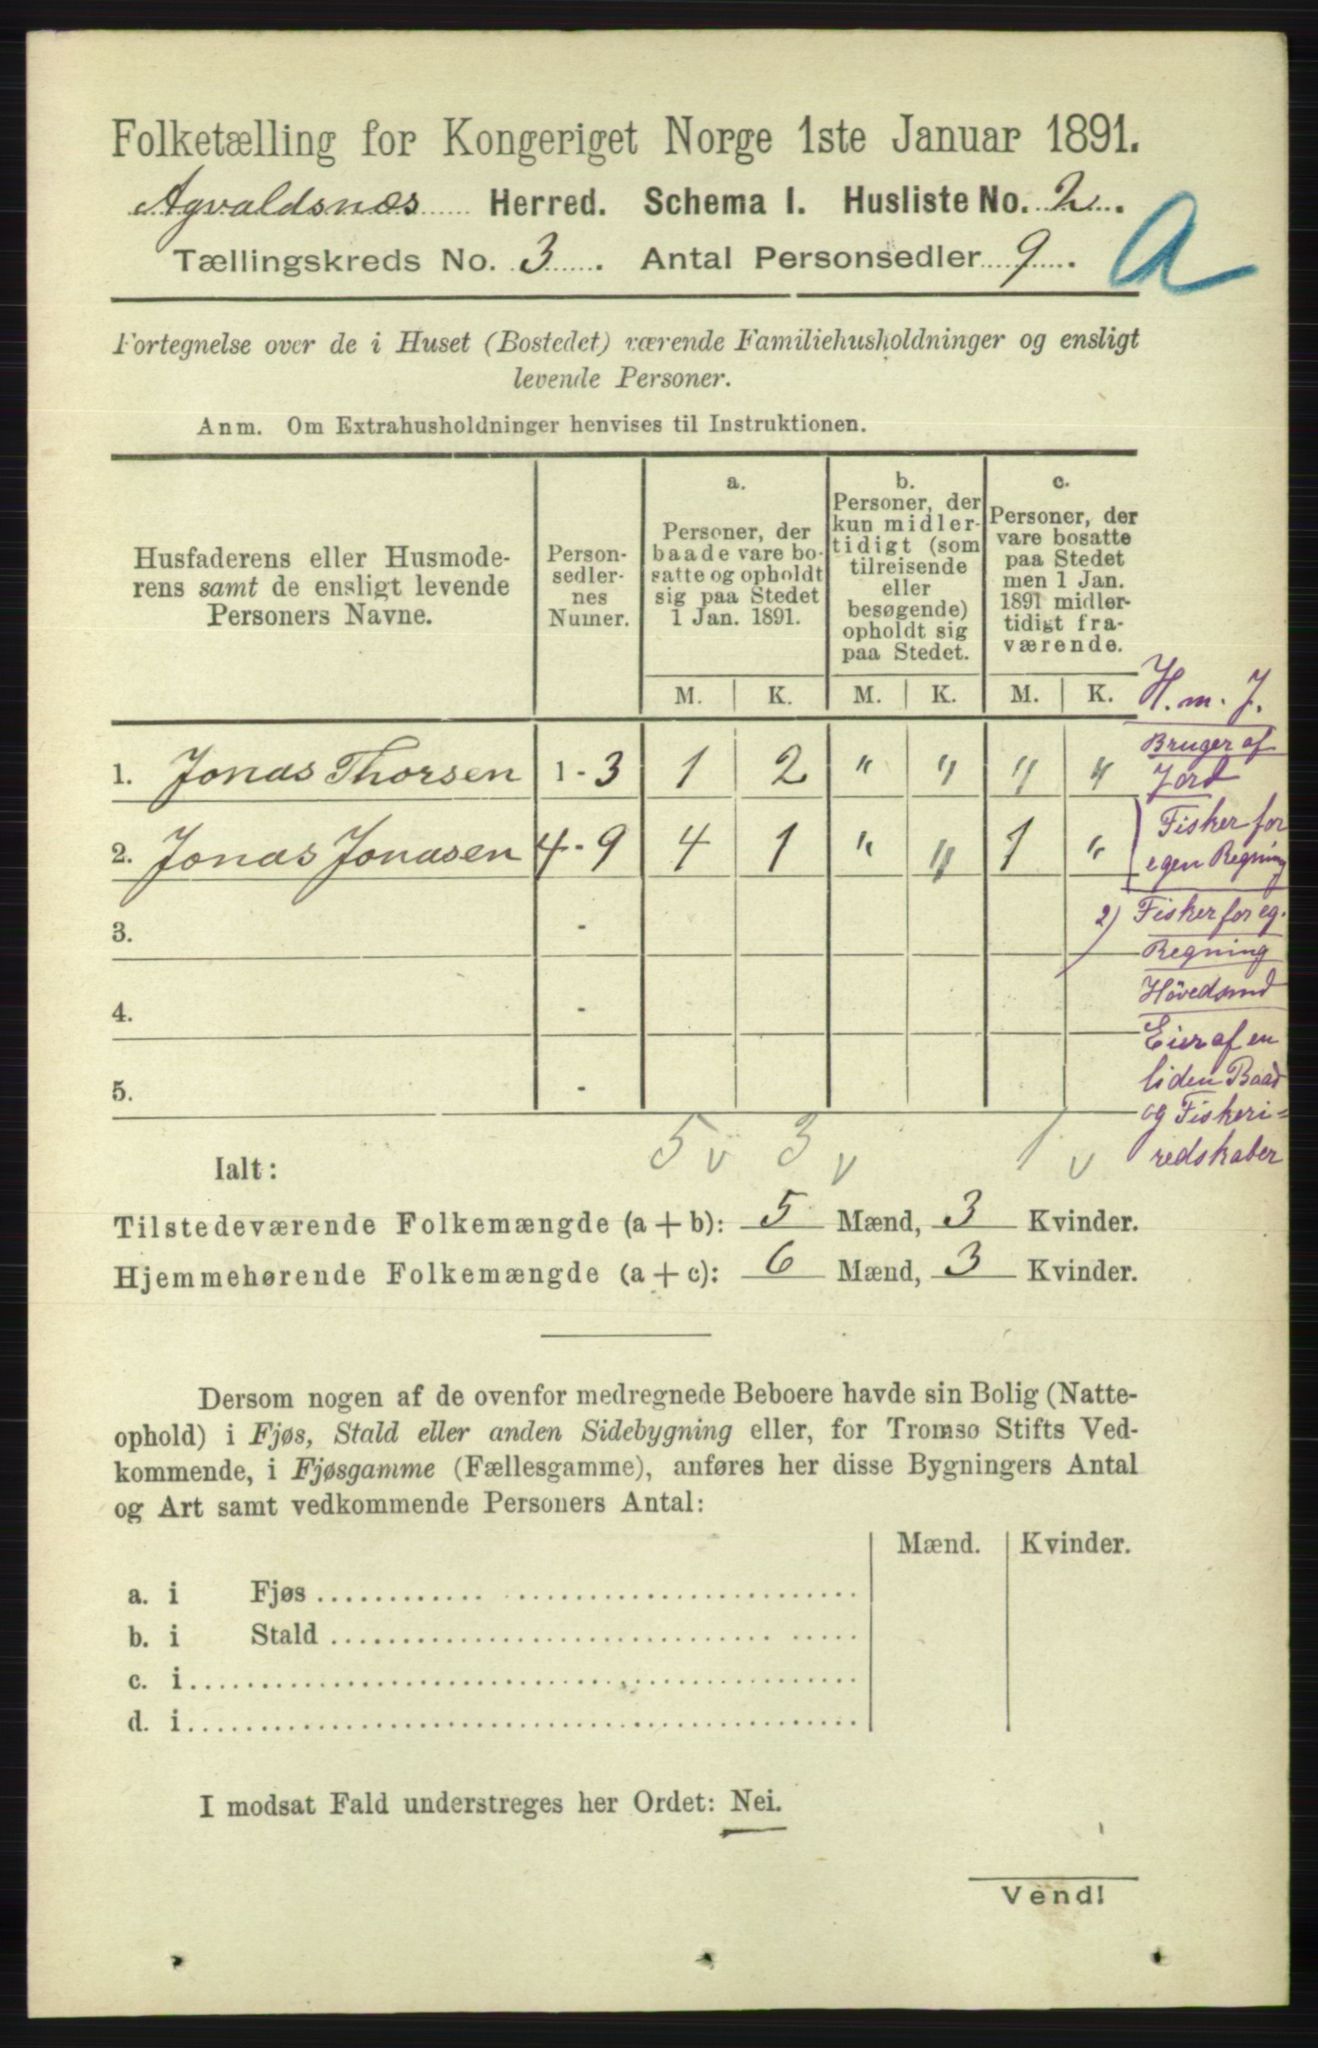 Folketælling for Kongeriget Norge 1ste Januar 1891.
Agvaldsnæs Herred. Schema I. Husliste No. 2.
Tællingskreds No. 3. Antal Personsedler 9. A
Fortegnelse over de i Huset (Bostedet) værende Familiehusholdninger og ensligt
levende Personer.
Anm. Om Extrahusholdninger henvises til Instruktionen.
Husfaderens eller Husmode-
rens samt de ensligt levende
Personers Navne.
Person-
sedler-
nes
Numer.
a.
Personer, der
baade vare bo-
satte og opholdt
sig paa Stedet
1 Jan. 1891.
b.
Personer, der
kun midler-
tidigt (som
tilreisende
eller
besøgende)
opholdt sig
paa Stedet.
c.
Personer, der
vare bosatte
paa Stedet
men 1 Jan.
1891 midler-
tidigt fra-
værende.
M. K. M. K. M. K.
H. m. J.
Bruger af
Jord
1. Jonas Thorsen 1 - 3 1 2 " " " "
Fisker for
egen Regning
2. Jonas Jonasen 4 - 9 4 1 " " 1 "
2) Fisker for eg.
Regning
3. -
Hövedsmd
4. -
Eier af en
liden Baad
5. -
og Fiskeri=
redskaber
5 v 3 v 1 v
Ialt:
Tilstedeværende Folkemængde (a + b): 5 Mænd, 3 Kvinder.
Hjemmehørende Folkemængde (a + c): 6 Mænd, 3 Kvinder.
Dersom nogen af de ovenfor medregnede Beboere havde sin Bolig (Natte-
ophold) i Fjøs, Stald eller anden Sidebygning eller, for Tromsø Stifts Ved-
kommende, i Fjøsgamme (Fællesgamme), anføres her disse Bygningers Antal
og Art samt vedkommende Personers Antal:
Mænd. Kvinder.
a. i Fjøs
b. i Stald
c. i
d. i
I modsat Fald understreges her Ordet: Nei.
Vend!